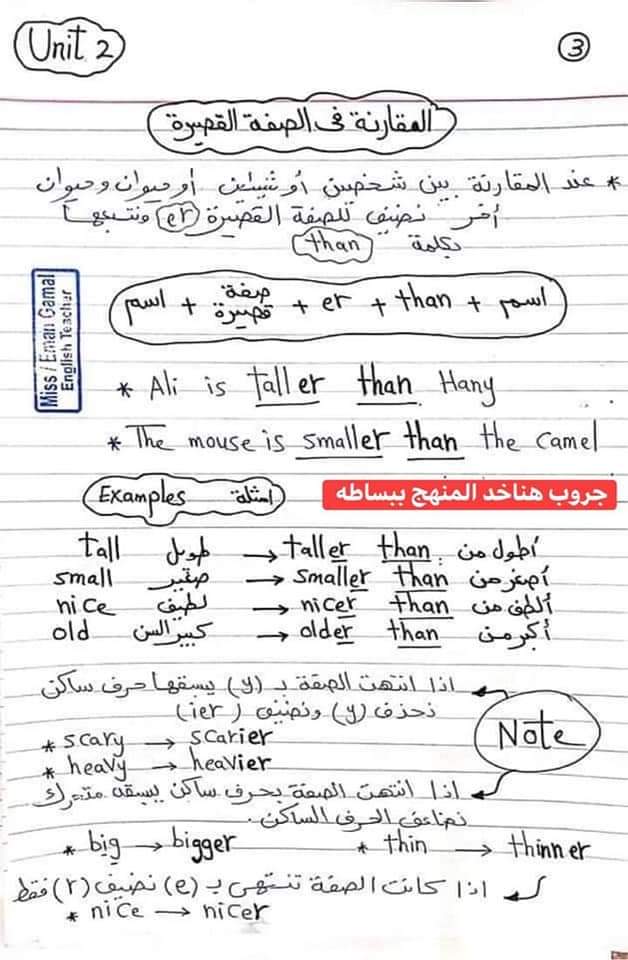 Unit 2
3
المقارنة فى الصفة القصيرة
* عند المقارنة بين شخصين أو شيئين أو حيوان وحيوان
أخر نضيف للصفة القصيرة (er) ونتبعها
بكلمة than
اسم + صفة قصيرة + er + than + اسم
Miss / Eman Gamal
English Teacher
* Ali is taller than Hany
* The mouse is smaller than the camel
جروب هناخد المنهج ببساطه
Examples امثلة
tall طويل → taller than أطول من
small صغير → smaller than أصغر من
nice لطيف → nicer than ألطف من
old كبير السن → older than أكبر من
Note
اذا انتهت الصفة بـ (y) يسبقها حرف ساكن
نحذف (y) ونضيف (ier)
* scary → scarier
* heavy → heavier
اذا انتهت الصفة بحرف ساكن يسبقه متحرك
نضاعف الحرف الساكن.
* big → bigger * thin → thinner
اذا كانت الصفة تنتهى بـ (e) نضيف (r) فقط
* nice → nicer